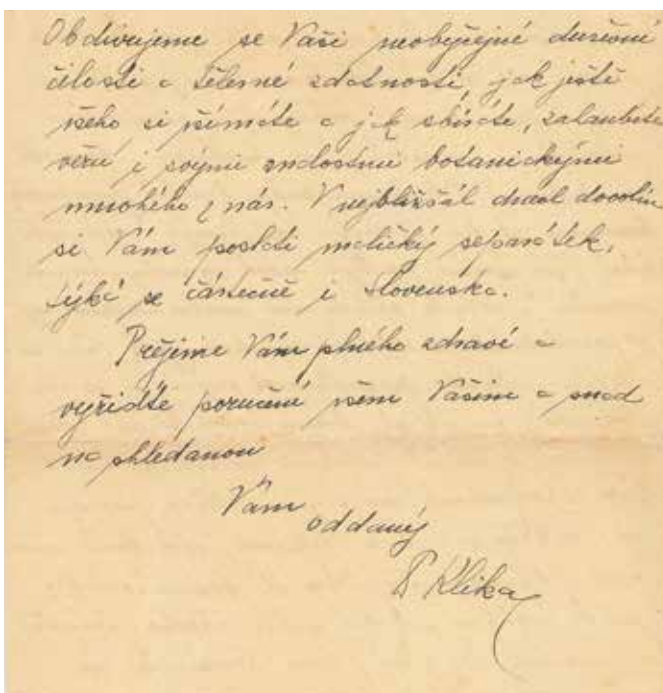 Obdivujeme se Vaší neobyčejné duševní
čilosti a tělesné zdatnosti, jak ještě
všeho si všímáte a jak sbíráte, zahanbíte
věru i svými znalostmi botanickými
mnohého z nás. V nejbližších dnech dovolím
si Vám poslati maličký separátek,
týká se částečně i Slovenska.
Přejeme Vám plného zdraví a
vyřiďte poručení všem Vašim a snad
na shledanou
Vám
oddaný
Klika